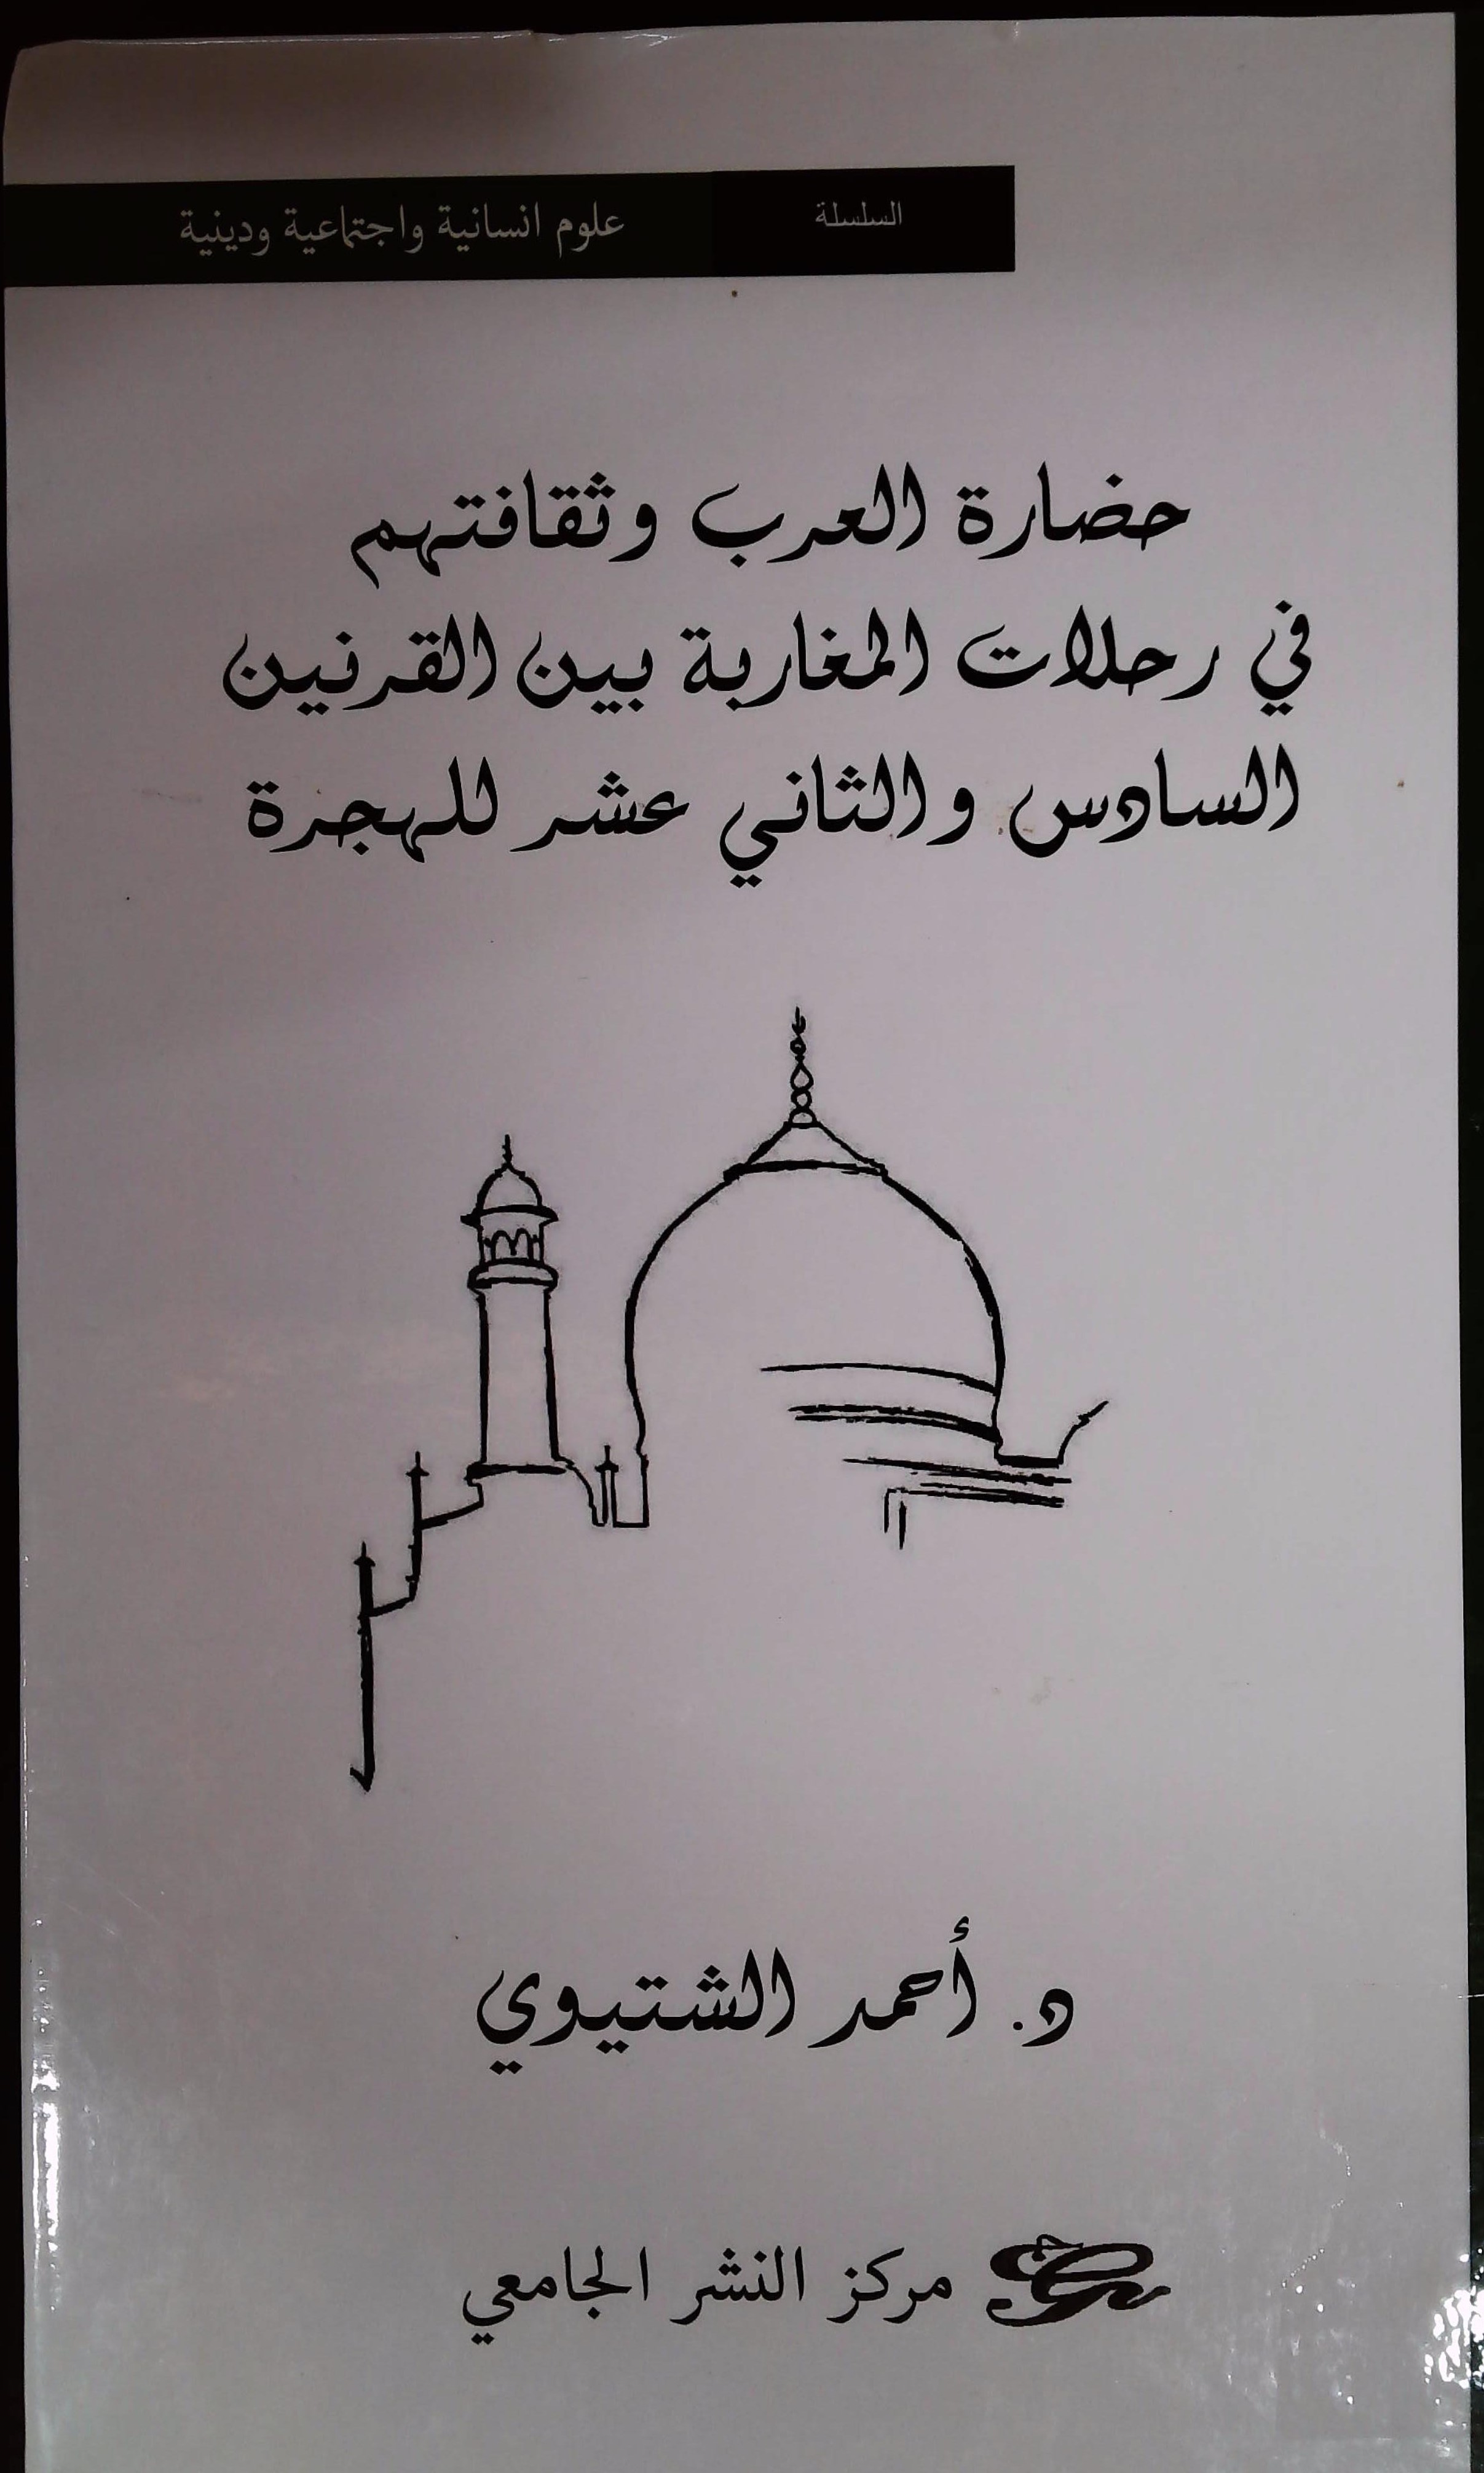 السلسلة علوم انسانية واجتماعية ودينية
حضارة العرب وثقافتهم
في رحلات المغاربة بين القرنين
السادس والثاني عشر للهجرة
د. أحمد الشتيوي
مركز النشر الجامعي